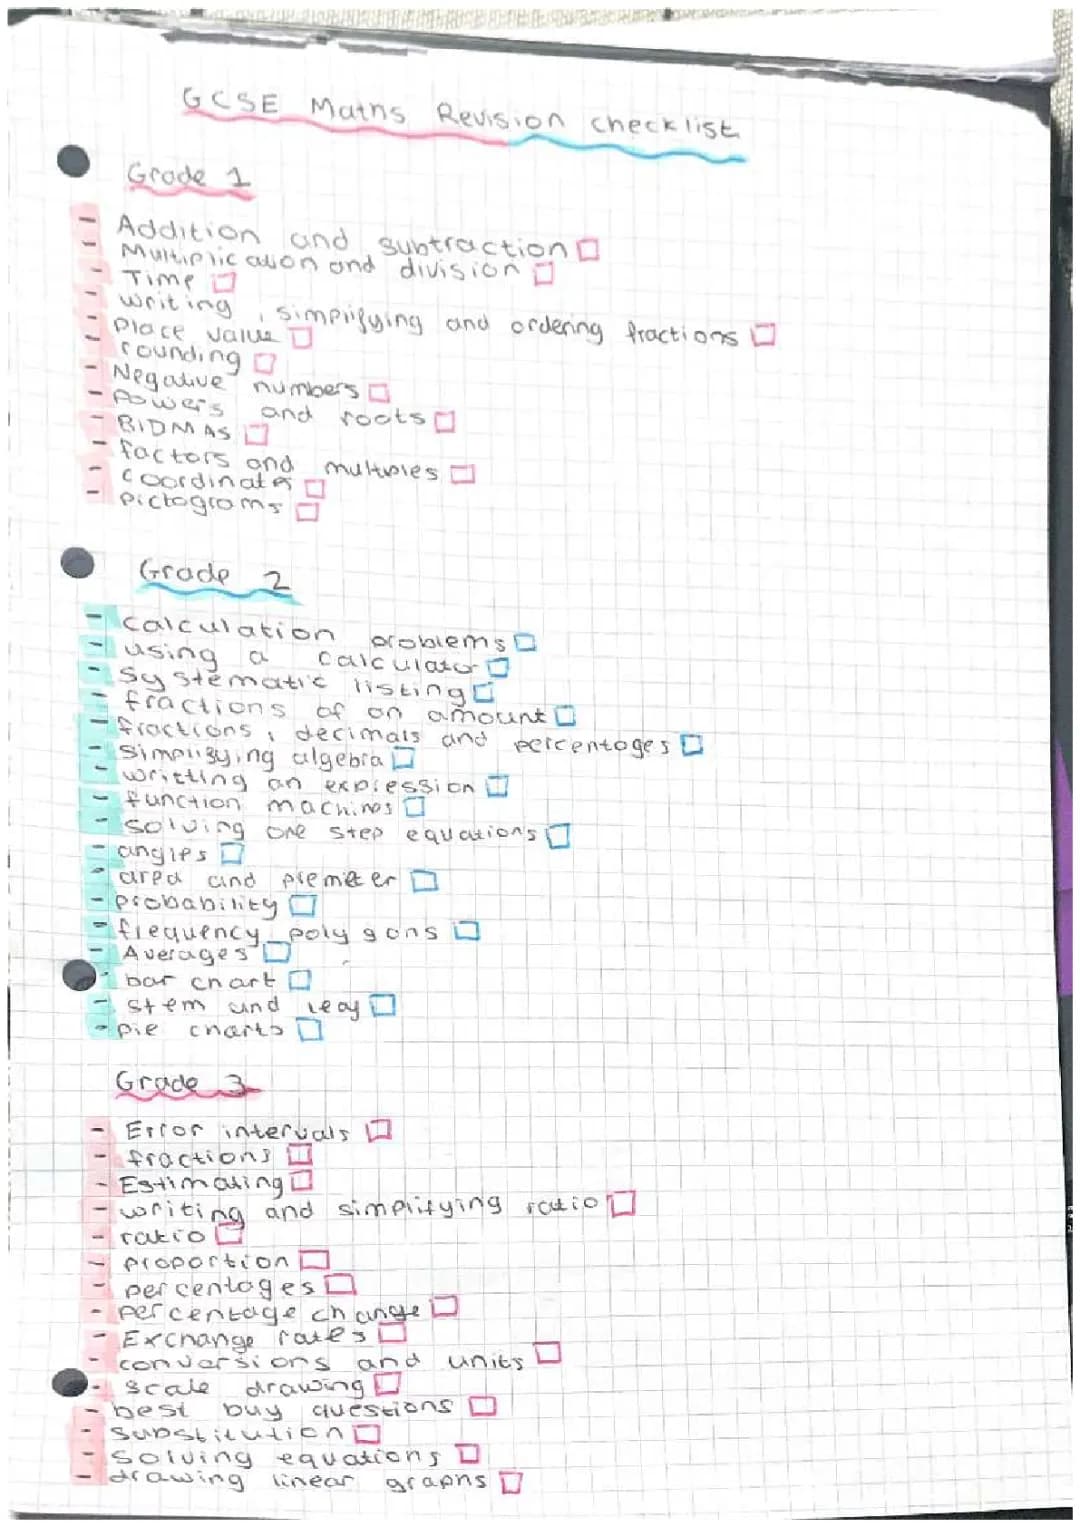 GCSE Maths Revision checklist
Grade 1
- Addition and subtraction
- Multiplication and division
- Time
- writing, simplifying and ordering fractions
- Place value
- rounding
- Negative numbers
- Powers and roots
- BIDMAS
- factors and multiples
- coordinates
- pictograms
Grade 2
- calculation problems
- using a calculator
- systematic listing
- fractions of an amount
- fractions, decimals and percentages
- simplifying algebra
- writting an expression
- function machines
- solving one step equations
- angles
- area and piemeter
- probability
- frequency polygons
- Averages
- bar chart
- stem and leaf
- pie charts
Grade 3
- Error intervals
- fractions
- Estimating
- writing and simplifying ratio
- ratio
- proportion
- percentages
- percentage change
- Exchange rates
- conversions and units
- scale drawing
- best buy questions
- substitution
- solving equations
- drawing linear graphs